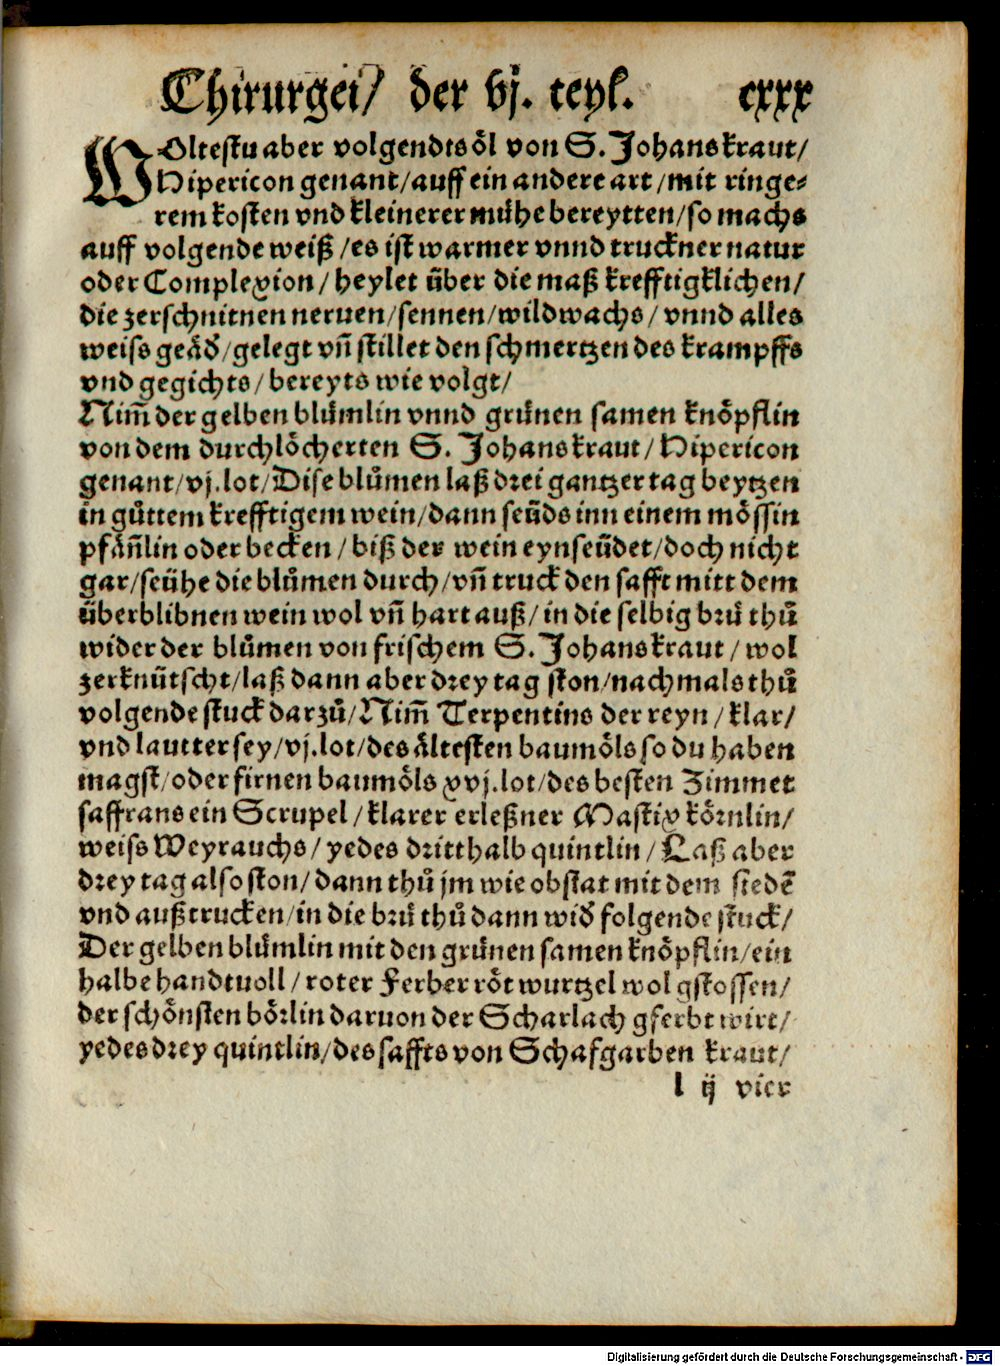 Chirurgei/ der vj. teyl. cxxx
WOltestu aber volgendts öl von S. Johanskraut/
Hipericon genant/auff ein andere art/mit ringe⸗
rem kosten vnd kleinerer mühe bereytten/so machs
auff volgende weiß/es ist warmer vnnd truckner natur
oder Complexion/heylet über die maß krefftigklichen/
die zerschnitnen neruen/sennen/wildwachs/vnnd alles
weiss geäď/gelegt vñ stillet den schmertzen des krampffs
vnd gegichts/bereyts wie volgt/
Nim̃ der gelben blümlin vnnd grünen samen knöpflin
von dem durchlöcherten S. Johanskraut/Hipericon
genant/vj.lot/Dise blůmen laß drei gantzer tag beytzen
in gůttem krefftigem wein/dann seüds inn einem mössin
pfäñlin oder becken/biß der wein eynseüdet/doch nicht
gar/seühe die blůmen durch/vñ truck den safft mitt dem
überblibnen wein wol vñ hart auß/in die selbig brü thů
wider der blůmen von frischem S. Johanskraut/wol
zerknütscht/laß dann aber drey tag ston/nachmals thů
volgende stuck darzů/Nim̃ Terpentins der reyn/klar/
vnd lautter sey/vj.lot/des ältesten baumöls so du haben
magst/oder firnen baumöls xvj.lot/des besten Zimmet
saffrans ein Scrupel/klarer erleßner Mastix körnlin/
weiss Weyrauchs/yedes dritthalb quintlin/Laß aber
drey tag also ston/dann thů jm wie obstat mit dem siedē
vnd außtrucken/in die brü thů dann wiď folgende stuck/
Der gelben blümlin mit den grünen samen knöpflin/ein
halbe handtuoll/roter Ferber röt wurtzel wol gstossen/
der schönsten börlin daruon der Scharlach gferbt wirt/
yedes drey quintlin/des saffts von Schafgarben kraut/
l ij vier
Digitalisierung gefördert durch die Deutsche Forschungsgemeinschaft - DFG